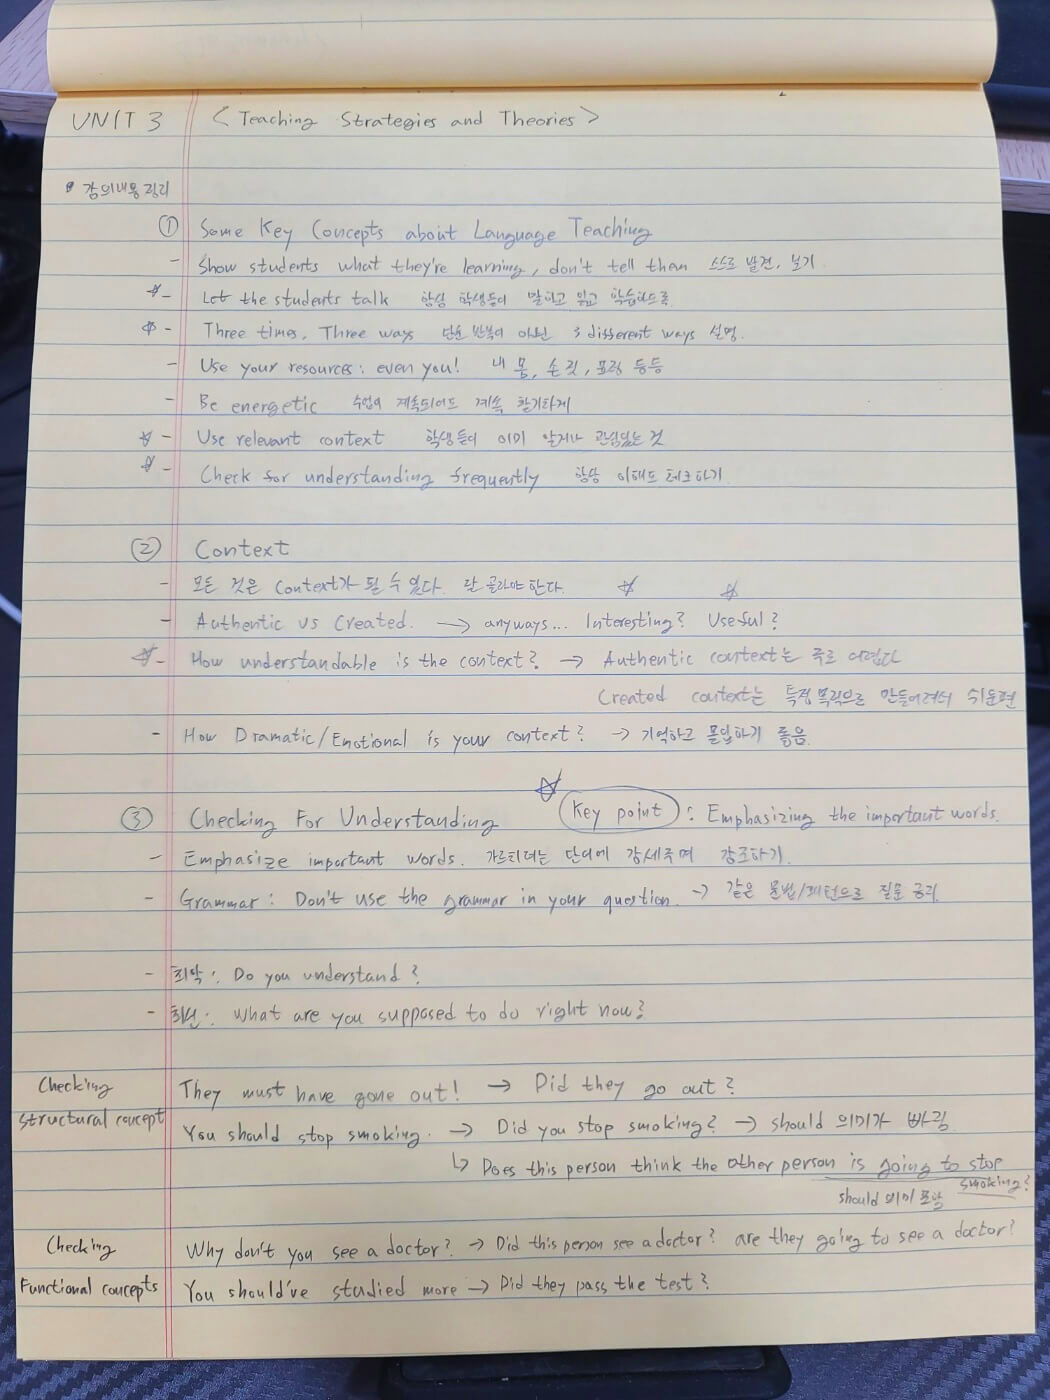 UNIT 3 < Teaching Strategies and Theories >
• 강의내용정리
① Some Key Concepts about Language Teaching
- Show students what they're learning, don't tell them 스스로 발견, 보기
☆- Let the students talk 항상 학생들이 말하고 읽고 학습하도록
☆- Three times, Three ways 단순 반복이 아닌 3 different ways 설명.
- Use your resources: even you! 내 몸, 손짓, 표정 등등
- Be energetic 수업이 계속되어도 계속 활기차게
☆- Use relevant context 학생들이 이미 알거나 관심있는 것
☆- Check for understanding frequently 항상 이해도 체크하기.
② Context
- 모든 것은 Context가 될 수 있다. 잘 골라야 한다. ☆ ☆
- Authentic vs Created. → anyways... Interesting? Useful?
☆- How understandable is the context? → Authentic context는 주로 어렵다
Created context는 특정 목적으로 만들어져서 쉬운편
- How Dramatic/Emotional is your context? → 기억하고 몰입하기 좋음.
③ Checking For Understanding ☆ Key point : Emphasizing the important words.
- Emphasize important words. 가르치려는 단어에 강세주며 강조하기.
- Grammar: Don't use the grammar in your question. → 같은 문법/패턴으로 질문 금지.
- 최악: Do you understand?
- 최선: What are you supposed to do right now?
Checking They must have gone out! → Did they go out?
structural concept You should stop smoking. → Did you stop smoking? → should 의미가 빠짐
↳ Does this person think the other person is going to stop
smoking?
should 의미 포함
Checking Why don't you see a doctor? → Did this person see a doctor? are they going to see a doctor?
Functional concepts You should've studied more → Did they pass the test?